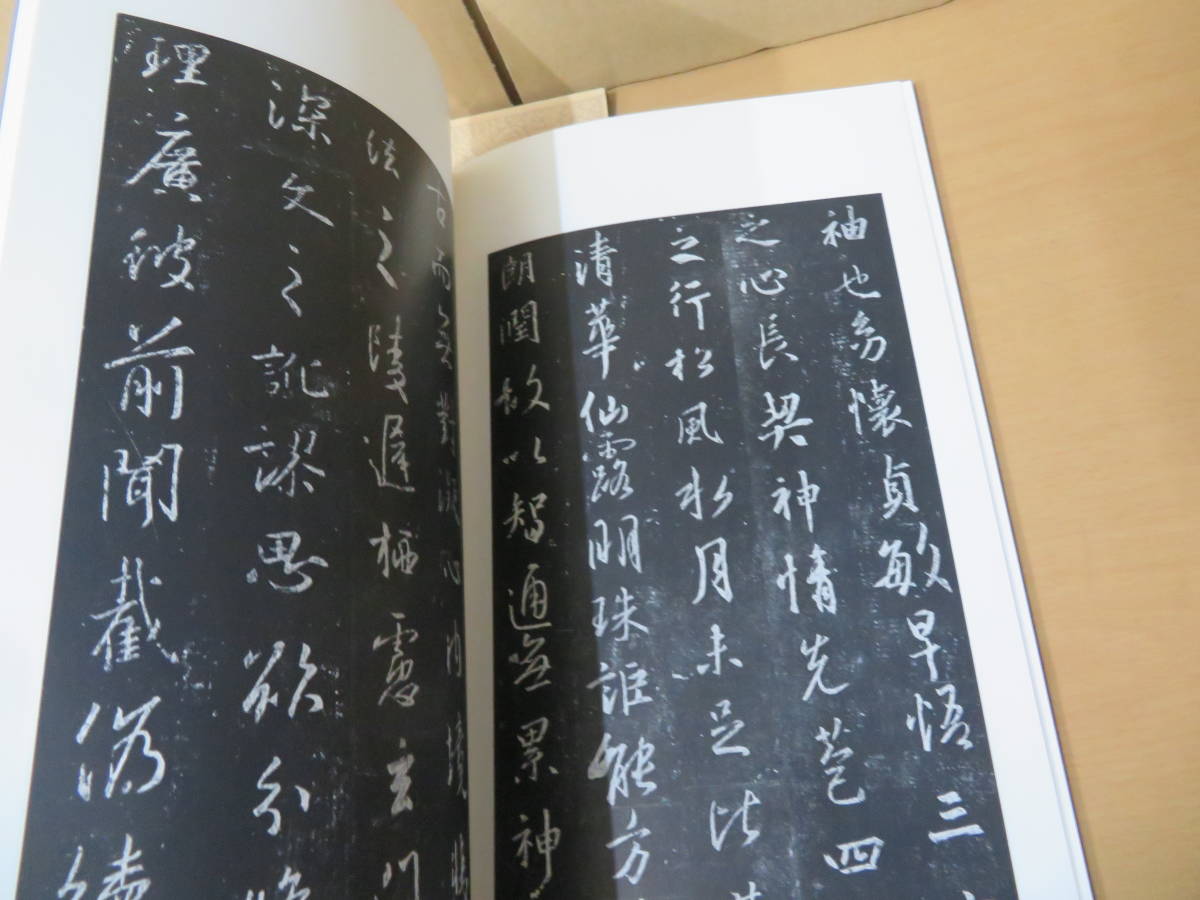 袖也幼懷貞敏早悟三
之心長契神情先苞四
之行松風水月未足比
清華仙露明珠詎能方
朗潤故以智通無累神
古而無對凝心內境悲
法之陵遲栖慮玄門
深文之訛謬思欲分條
理廣彼前聞截偽續